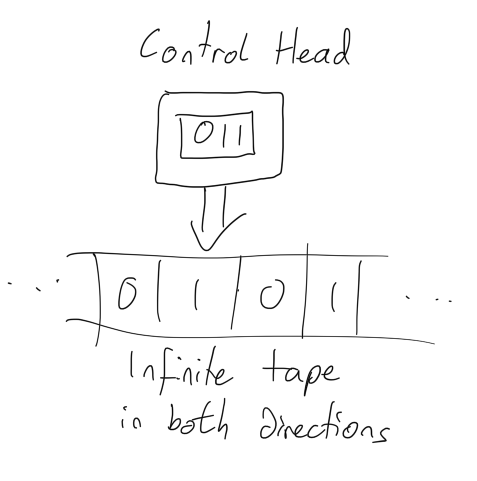 Control Head
011
... 0 1 0 1 ...
Infinite tape
in both directions